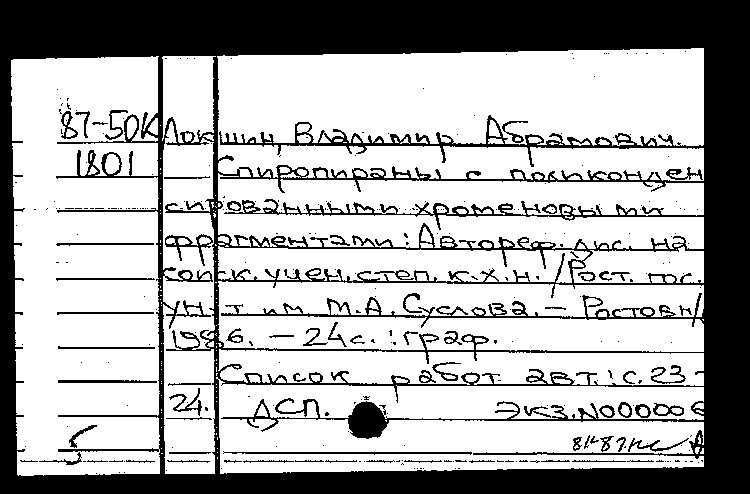 87-50К Локшин, Владимир Абрамович.
1801 Спиропираны с поликонден
сированными хроменовыми
фрагментами: Автореф. дис. на
соиск. учен. степ. к.х.н. / Рост. гос.
ун-т им. М.А. Суслова. — Ростов н/
1986. — 24 с. : граф.
Список работ авт.: с. 23-
24. ДСП. Экз. N000006
5